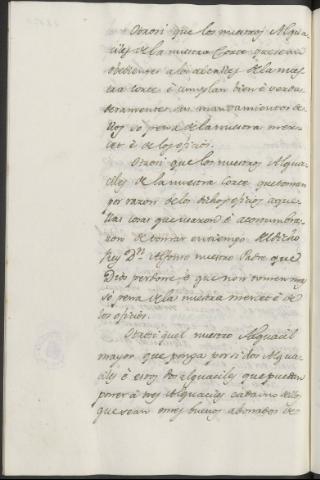 Otrosi que los nuestros Algua-
ciles de la nuestra Corte que sean
obedientes a los alcaldes de la nues-
tra corte é cumplan bien é verda-
deramente sus mandamientos de-
llos so pena de la nuestra mer-
cet é de los oficios.
Otrosi que los nuestros Algua-
ciles de la nuestra Corte que toman
por razon de los dichos oficios aque-
llas cosas que usaron é acostumbra-
ron de tomar en tiempo del dicho
Rey Dn. Alfonso nuestro Padre que
Dios perdone é que non tomen mas
so pena de la nuestra mercet é de
los oficios.
Otrosi quel nuestro Alguacil
mayor que ponga por si dos Algua-
ciles é estos dos alguaciles que puedan
poner á tres Alguaciles cada uno dellos
que sean omes buenos abonados de